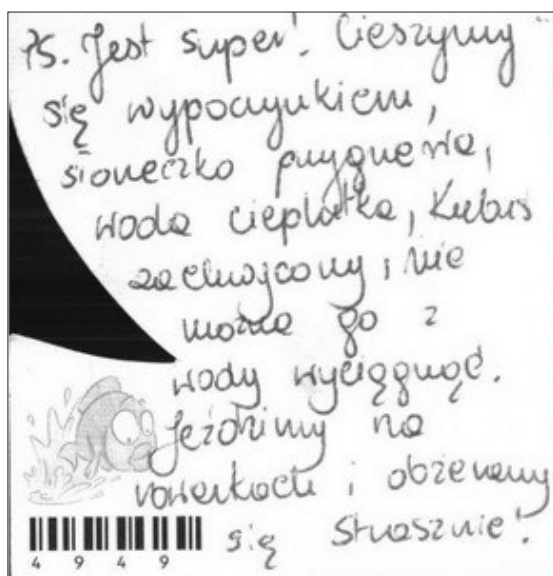 PS. Jest super! Cieszymy
się wypoczynkiem,
słoneczko przygrzewa,
woda cieplutka, Kubuś
zachwycony i nie
można go z
wody wyciągnąć.
Jeździmy na
rowerkach i obżeramy
się strasznie!
4 9 4 9